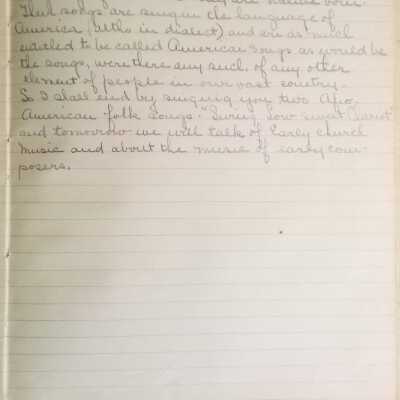 they are native born.
Their songs are sung in the language of
America, (altho in dialect) and are as much
entitled to be called American songs as would be
the songs, were there any such, of any other
element of people in our vast country.
So I shall end by singing you two Afro
American folk songs. "Swing low sweet Chariot"
and tomorrow we will talk of Early church
music and about the music of early com-
posers.